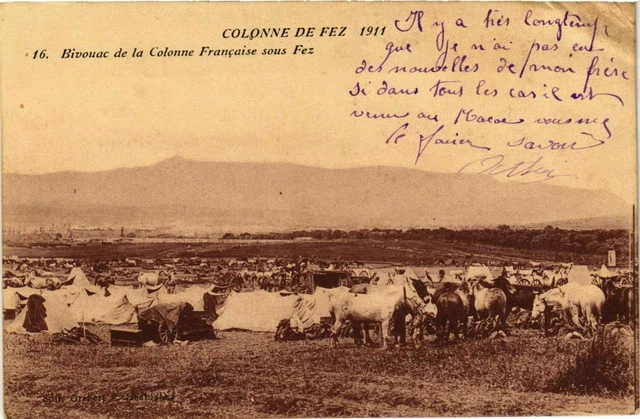 COLONNE DE FEZ 1911
16. Bivouac de la Colonne Française sous Fez
Il y a très longtemps
que je n'ai pas eu
des nouvelles de mon frère
si dans tous les cas il est
venu au Maroc vous me
le fairer savoir